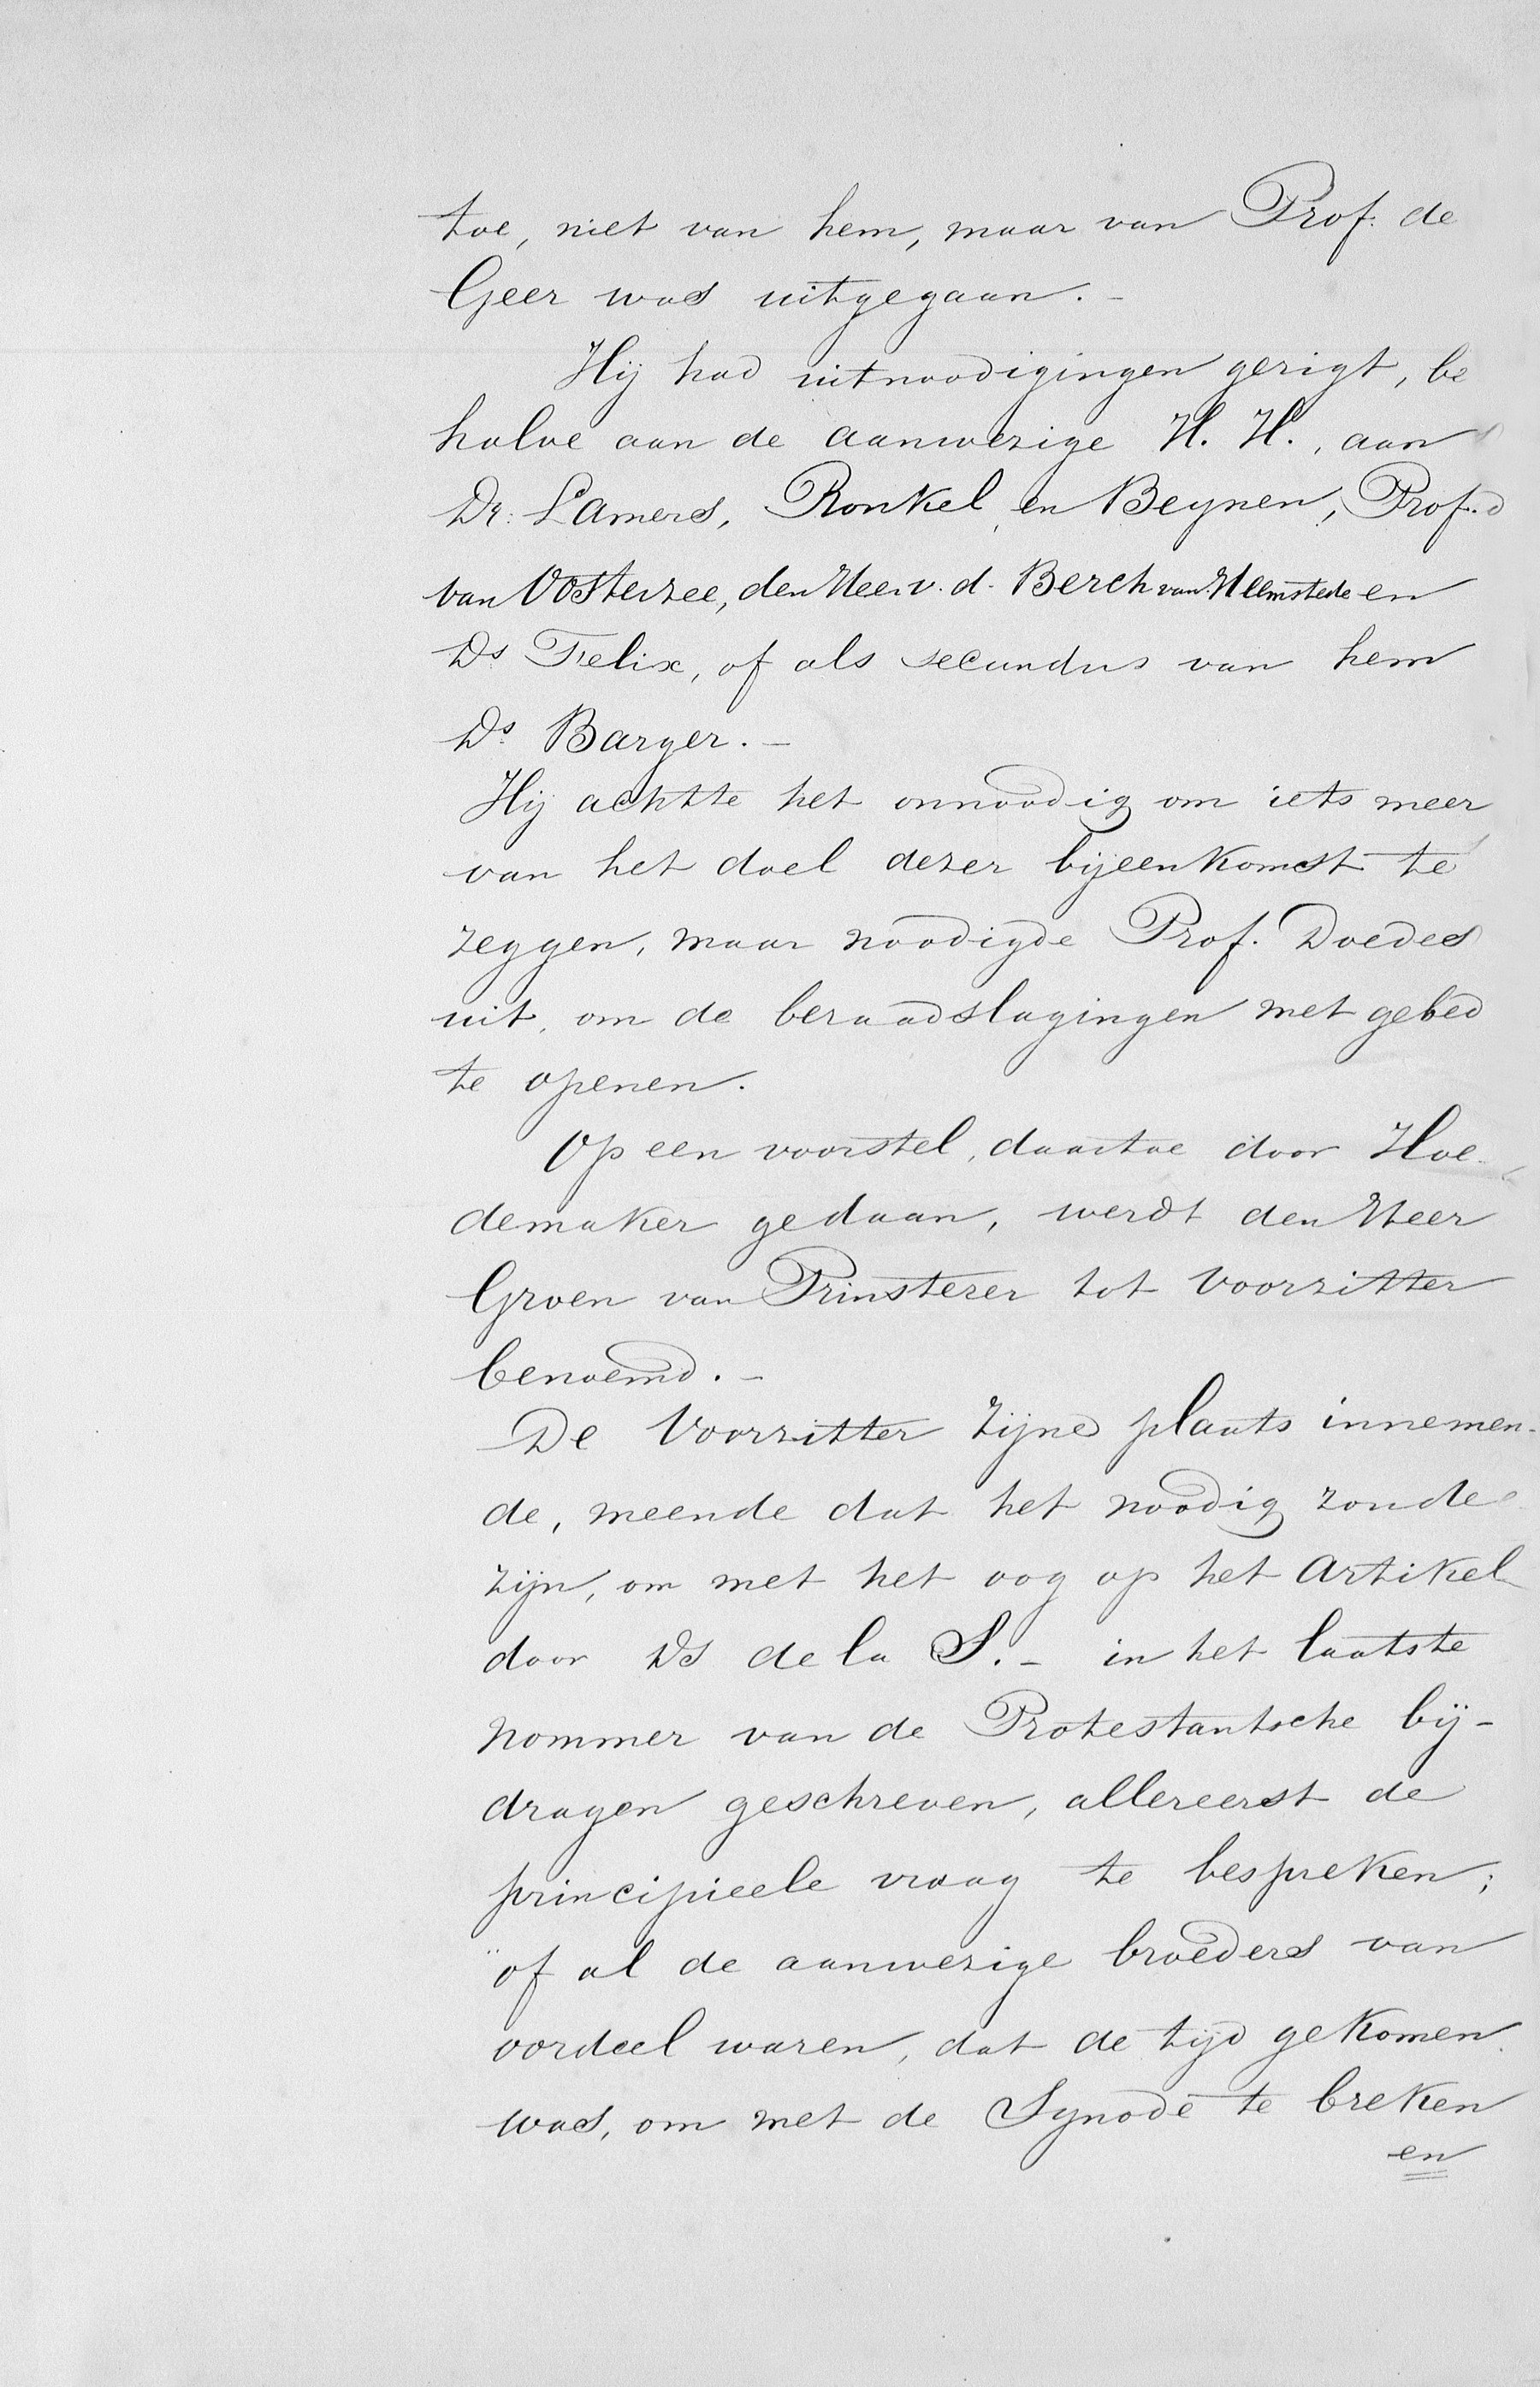 toe, niet van hem, maar van Prof. de
Geer was uitgegaan. -
Hij had uitnoodigingen gerigt, be
halve aan de aanwezige H. H., aan
Dr. Lamers, Ronkel en Beynen, Prof.
van Oosterzee, den Heer v. d. Berch van Heemstede en
Ds Felix, of als secundus van hem
Ds. Barger. -
Hij achtte het onnoodig om iets meer
van het doel dezer bijeenkomst te
zeggen, maar noodigde Prof. Doedes
uit, om de beraadslagingen met gebed
te openen.
Op een voorstel, daartoe door Hoe-
demaker gedaan, werdt den Heer
Groen van Prinsterer tot Voorzitter
benoemd. -
De Voorzitter zijne plaats innemen-
de, meende dat het noodig zoude
zijn, om met het oog op het artikel
door Ds de la S. - in het laatste
nommer van de Protestantsche bij-
dragen geschreven, allereerst de
principieele vraag te bespreken;
"of al de aanwezige broeders van
oordeel waren, dat de tijd gekomen
was, om met de Synode te breken
en